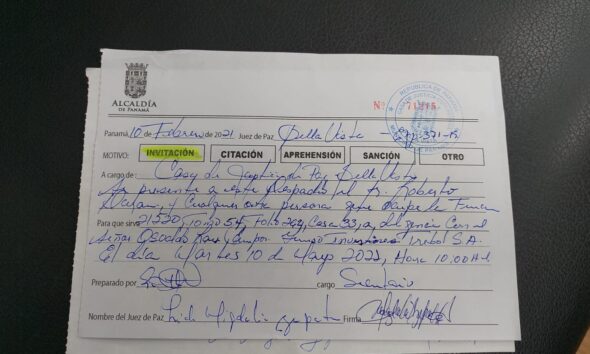 ALCALDÍA
DE PANAMÁ
Nº 71215
REPÚBLICA DE PANAMÁ
Panamá, 10 de Febrero de 2021 Juez de Paz Bella Vista
MOTIVO: INVITACIÓN CITACIÓN APREHENSIÓN SANCIÓN OTRO
A cargo de: Casa de Justicia de Paz Bella Vista
presente a este Despacho al Sr. Roberto
y cualquier otra persona que ocupe la Finca
Para que sirva 21520, Tomo 54, Folio 262, Casa 33, a diligencia con el
Señor Osvaldo Inversiones Trebol S.A.
El día Martes 10 de Mayo 2022, Hora 10:00 AM
Preparado por cargo Secretario
Nombre del Juez de Paz Migdalia Firma